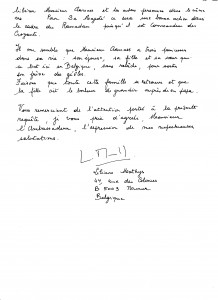 libérer Monsieur Aarrass et les autres personnes dans le même
cas. Par Sa Majesté ce sera une bonne action dans
le cadre du Ramadan puisqu'il est Commandeur des
Croyants.
Il me semble que Monsieur Aarrass a trois femmes
dans sa vie : son épouse, sa fille et sa sœur qui
se bat ici en Belgique, sans relâche, pour sortir
son frère des geôles.
Faisons que toute cette famille se retrouve et que
la fille ait le bonheur de grandir auprès de son papa.
Vous remerciant de l'attention portée à la présente
requête, je vous prie d'agréer, Monsieur
l'Ambassadeur, l'expression de mes respectueuses
salutations.
Liliane
rue des
B 5003
Belgique